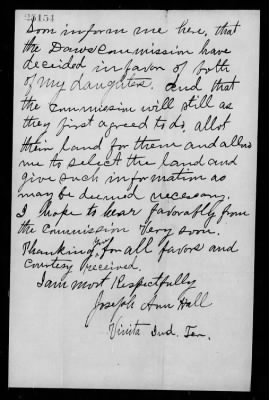 25154
Dom inform me here, that
the Daws Commission have
decided in favor of both
of my daughters. and that
the Commission will still as
they first agreed to do, allot
their land for them and allow
me to select the land and
give such information as
may be deemed necessary.
I hope to hear favorably from
the commission very soon.
Thanking you for all favors and
courtesy received.
I am most Respectfully
Joseph Ann Hall
Vinita Ind. Ter.